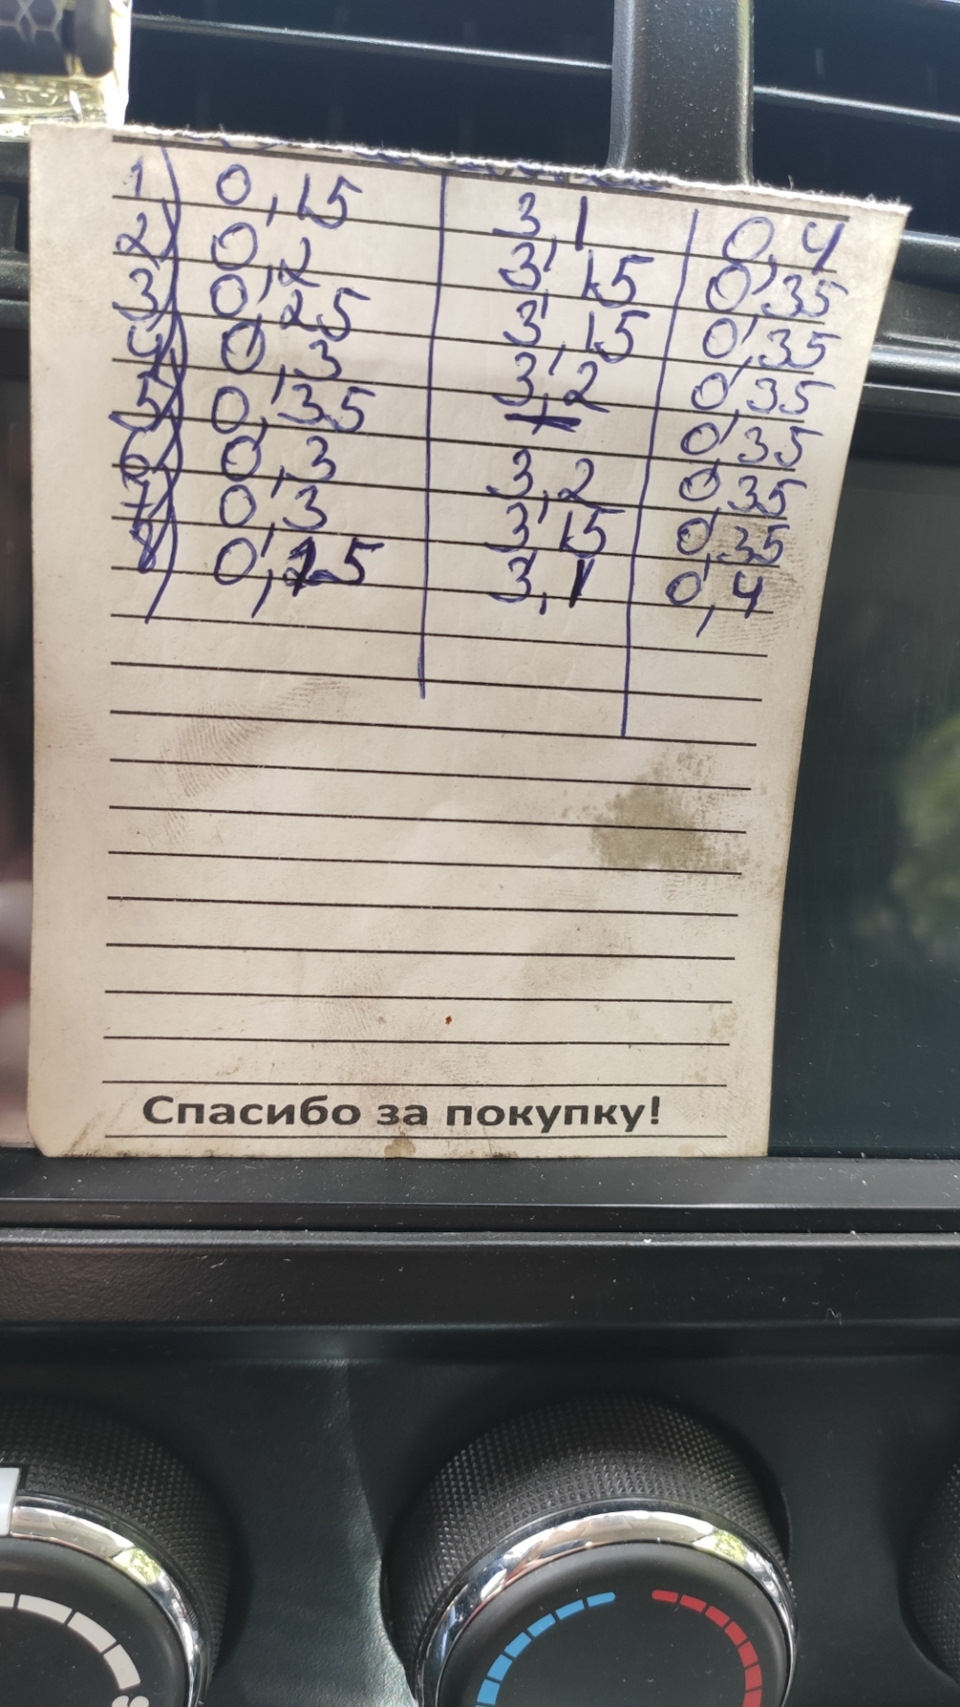 1) 0,15 3,1 0,4
2) 0,2 3,15 0,35
3) 0,25 3,15 0,35
4) 0,3 3,2 0,35
5) 0,35 + 0,35
6) 0,3 3,2 0,35
7) 0,3 3,15 0,35
8) 0,15 3,1 0,4
Спасибо за покупку!